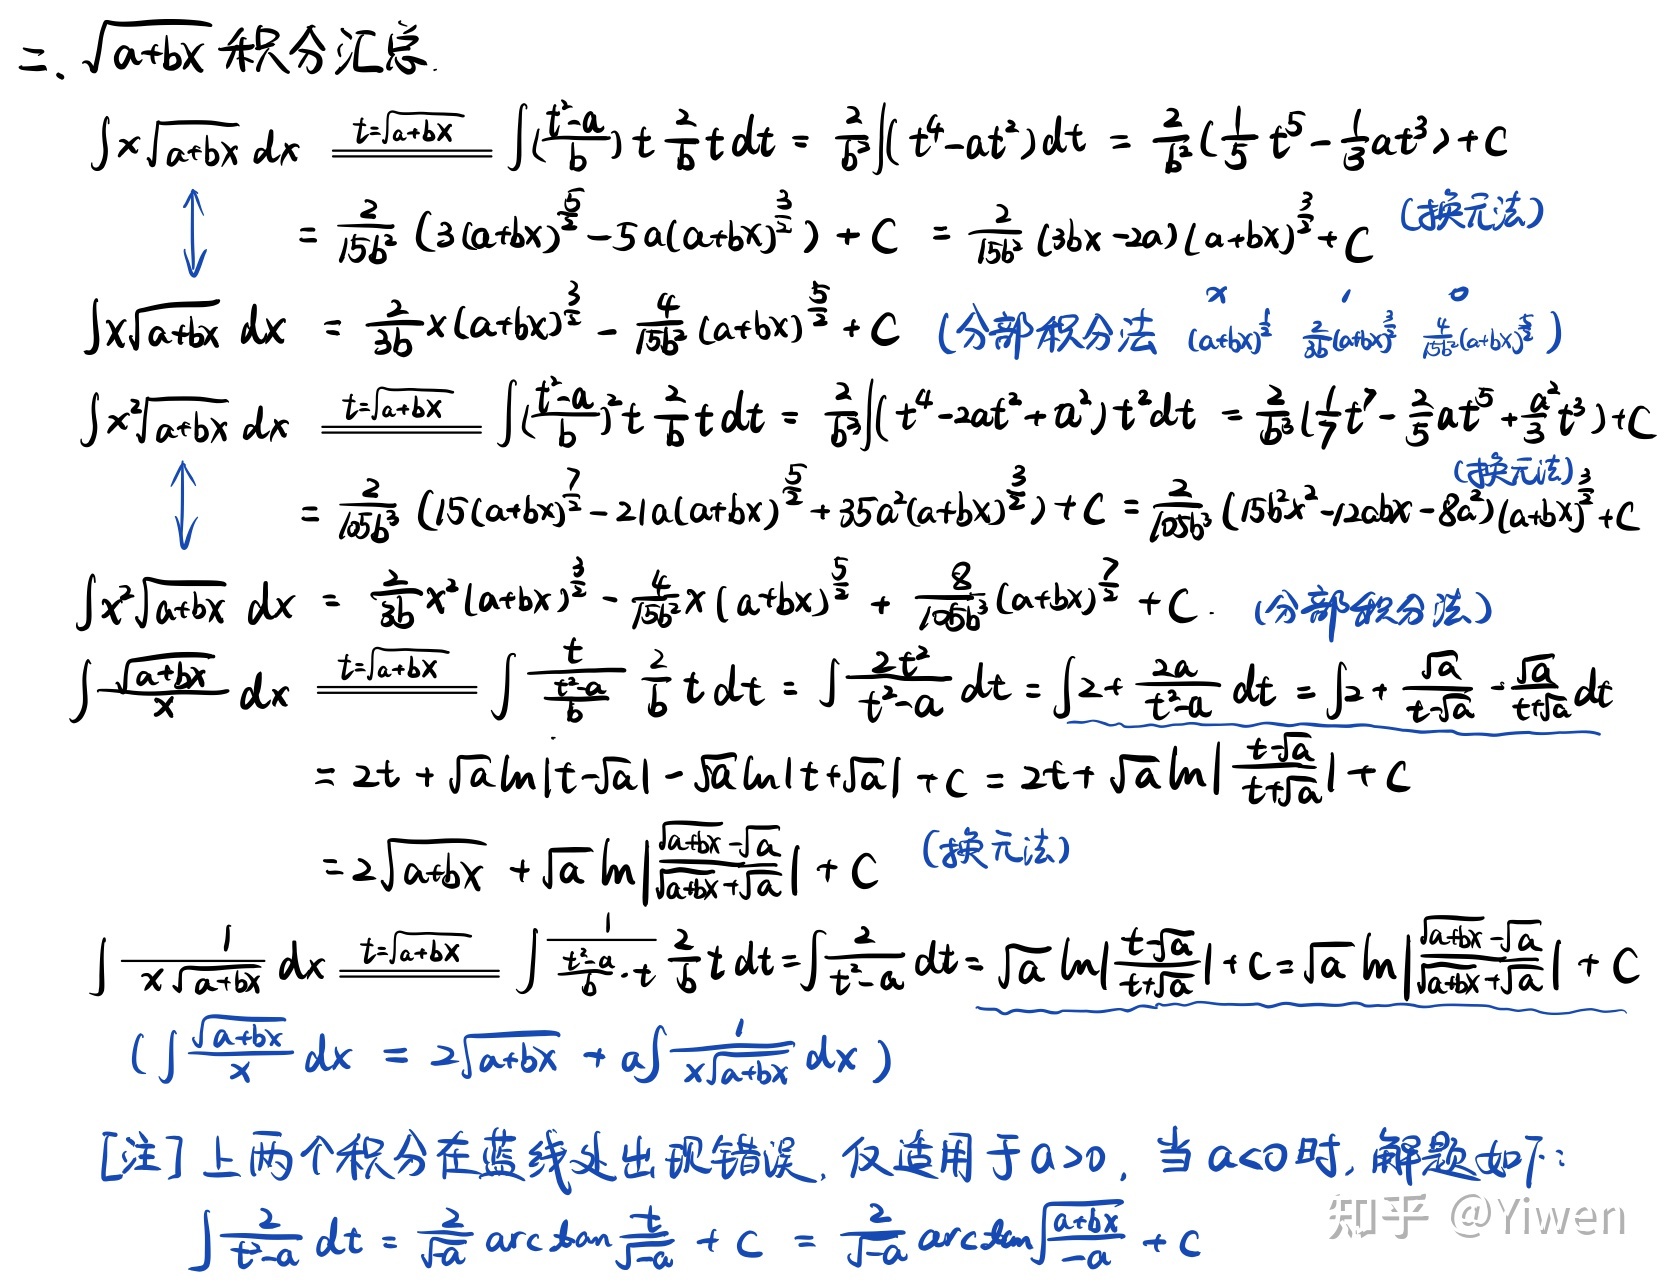 二、√(a+bx) 积分汇总.
∫x√(a+bx) dx =(t=√(a+bx))= ∫((t²-a)/b) t (2/b) t dt = (2/b²)∫(t⁴-at²)dt = (2/b²)((1/5)t⁵-(1/3)at³)+C
= (2/15b²)(3(a+bx)^(5/2)-5a(a+bx)^(3/2))+C = (2/15b²)(3bx-2a)(a+bx)^(3/2)+C (换元法)
∫x√(a+bx) dx = (2/3b)x(a+bx)^(3/2) - (4/15b²)(a+bx)^(5/2)+C (分部积分法 x 1 0 (a+bx)^(1/2) (2/3b)(a+bx)^(3/2) (4/15b²)(a+bx)^(5/2))
∫x²√(a+bx) dx =(t=√(a+bx))= ∫((t²-a)/b)² t (2/b) t dt = (2/b³)∫(t⁴-2at²+a²)t²dt = (2/b³)((1/7)t⁷-(2/5)at⁵+(a²/3)t³)+C
(换元法)
= (2/105b³)(15(a+bx)^(7/2)-21a(a+bx)^(5/2)+35a²(a+bx)^(3/2))+C = (2/105b³)(15b²x²-12abx-8a²)(a+bx)^(3/2)+C
∫x²√(a+bx) dx = (2/3b)x²(a+bx)^(3/2) - (4/15b²)x(a+bx)^(5/2) + (8/105b³)(a+bx)^(7/2)+C. (分部积分法)
∫(√(a+bx)/x) dx =(t=√(a+bx))= ∫(t/((t²-a)/b)) (2/b) t dt = ∫(2t²/(t²-a)) dt = ∫2+(2a/(t²-a)) dt = ∫2+(√a/(t-√a))-(√a/(t+√a)) dt
= 2t+√a ln|t-√a|-√a ln|t+√a|+C = 2t+√a ln|(t-√a)/(t+√a)|+C
= 2√(a+bx)+√a ln|(√(a+bx)-√a)/(√(a+bx)+√a)|+C (换元法)
∫(1/(x√(a+bx))) dx =(t=√(a+bx))= ∫(1/(((t²-a)/b)·t)) (2/b) t dt = ∫(2/(t²-a)) dt = √a ln|(t-√a)/(t+√a)|+C = √a ln|(√(a+bx)-√a)/(√(a+bx)+√a)|+C
(∫(√(a+bx)/x) dx = 2√(a+bx)+a∫(1/(x√(a+bx))) dx)
[注]上两个积分在蓝线处出现错误,仅适用于a>0,当a<0时,解题如下:
∫(2/(t²-a)) dt = (2/√-a) arctan(t/√-a)+C = (2/√-a) arctan√((a+bx)/-a)+C
知乎 @Yiwen